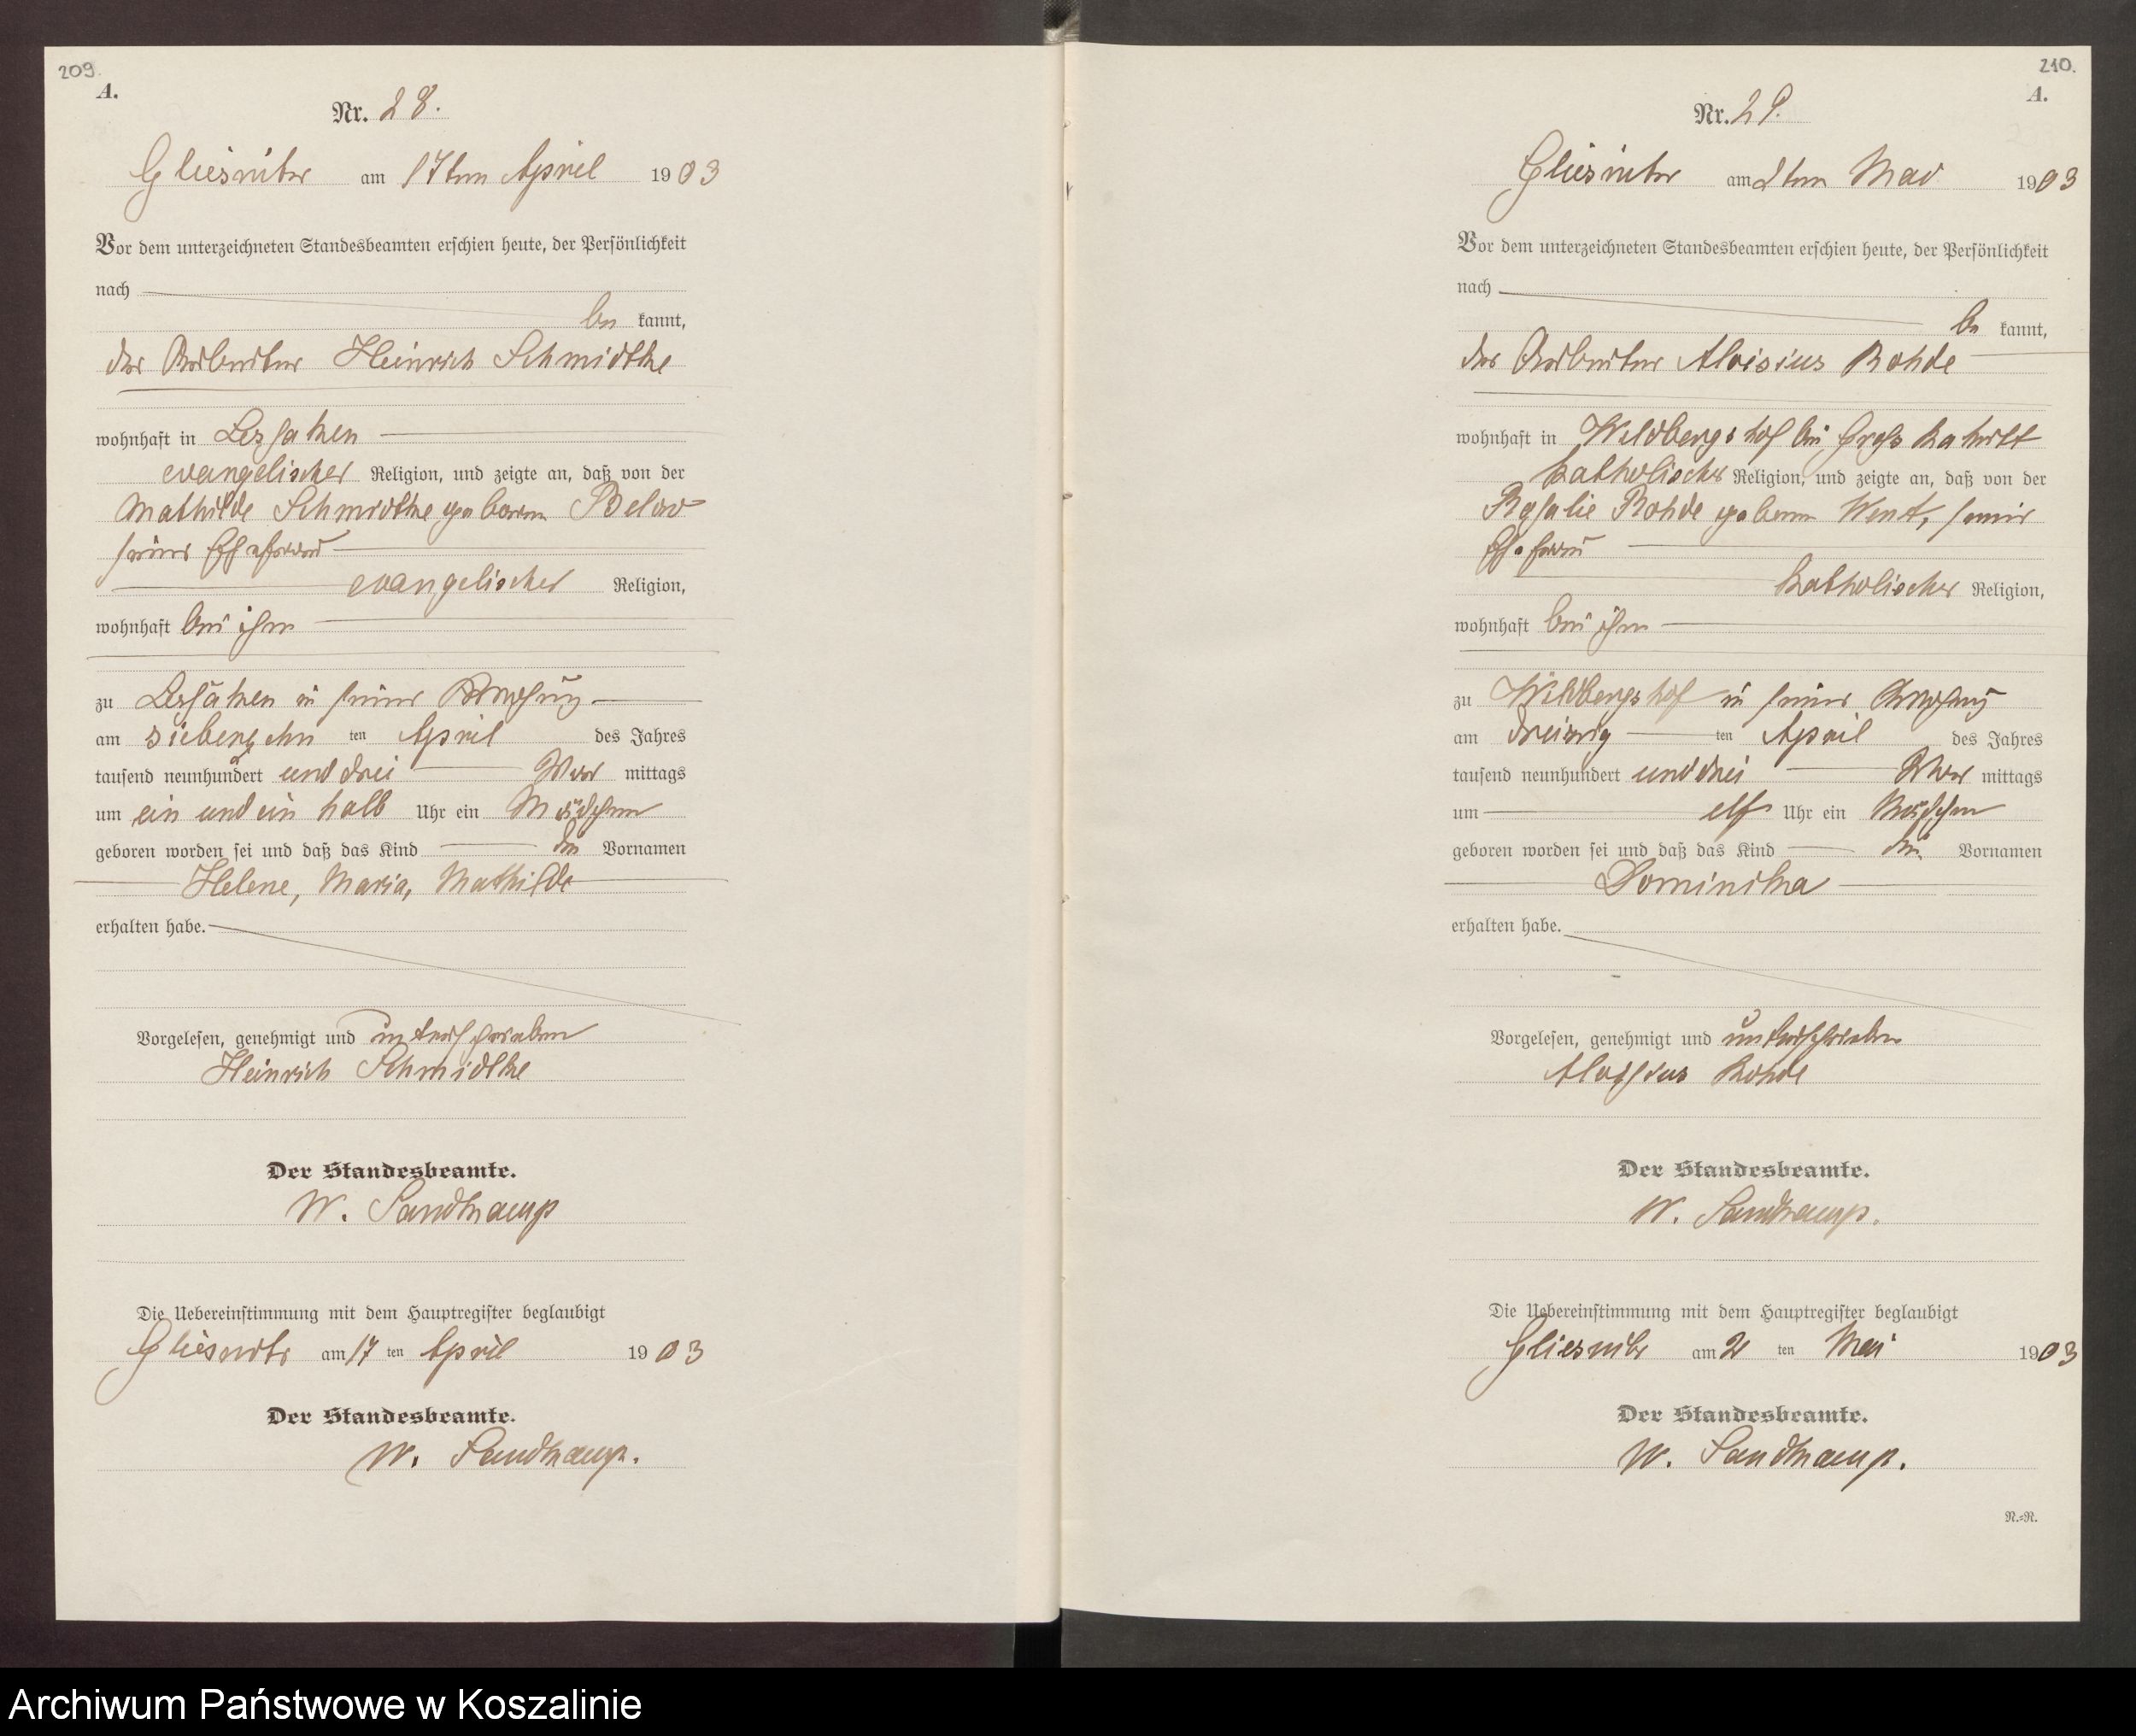 209.
A.
Nr. 28.
Gliesnitz am 17ten April 1903
Vor dem unterzeichneten Standesbeamten erschien heute, der Persönlichkeit
nach
be kannt,
der Arbeiter Heinrich Schmidtke
wohnhaft in Lessaken
evangelischer Religion, und zeigte an, daß von der
Mathilde Schmidtke geborenen Below
seiner Ehefrau
evangelischer Religion,
wohnhaft bei ihm
zu Lessaken in seiner Wohnung
am siebenzehn ten April des Jahres
tausend neunhundert und drei Vor mittags
um ein und ein halb Uhr ein Mädchen
geboren worden sei und daß das Kind die Vornamen
Helene, Maria, Mathilde
erhalten habe.
Vorgelesen, genehmigt und unterschrieben
Heinrich Schmidtke
Der Standesbeamte.
W. Sandkamp
Die Uebereinstimmung mit dem Hauptregister beglaubigt
Gliesnitz am 17 ten April 1903
Der Standesbeamte.
W. Sandkamp.
210.
A.
Nr. 29.
Gliesnitz am 2ten Mai 1903
Vor dem unterzeichneten Standesbeamten erschien heute, der Persönlichkeit
nach
be kannt,
der Arbeiter Aloisius Rohde
wohnhaft in Wildbergshof bei Gross
katholischer Religion, und zeigte an, daß von der
Rosalie Rohde geborenen Went, seiner
Ehefrau
katholischer Religion,
wohnhaft bei ihm
zu Wildbergshof in seiner Wohnung
am dreizig ten April des Jahres
tausend neunhundert und drei Vor mittags
um elf Uhr ein Mädchen
geboren worden sei und daß das Kind die Vornamen
Dominika
erhalten habe.
Vorgelesen, genehmigt und unterschrieben
Aloisius Rohde
Der Standesbeamte.
W. Sandkamp.
Die Uebereinstimmung mit dem Hauptregister beglaubigt
Gliesnitz am 2 ten Mai 1903
Der Standesbeamte.
W. Sandkamp.
N.=R.
Archiwum Państwowe w Koszalinie